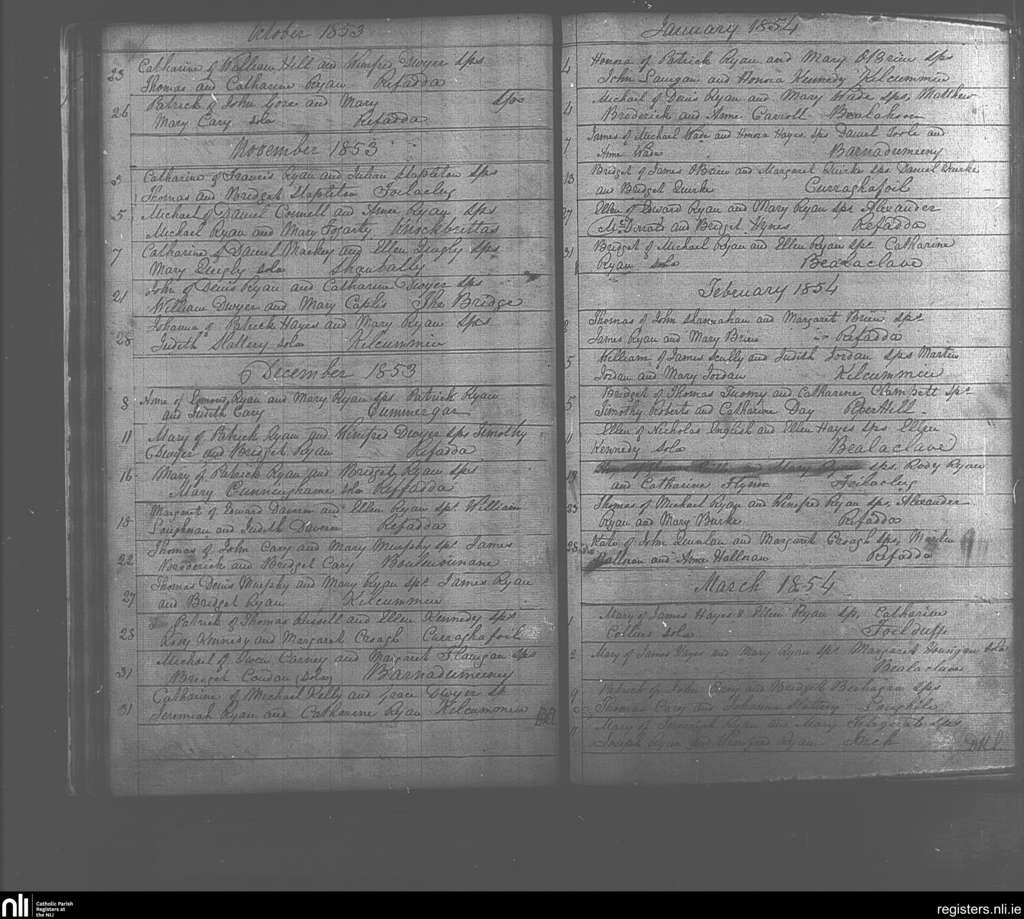 October 1853
23 Catharine of William Hill and Winfred Dwyer sps
Thomas and Catharine Ryan Reffadda
26 Patrick of John and Mary sps
Mary Cary sola Reffadda
November 1853
3 Catharine of Francis Ryan and Judith Stapleton sps
Thomas and Bridget Stapleton
5 Michael of Daniel Connell and Anne Ryan sps
Michael Ryan and Mary Fogarty Knockbrittas
7 Catharine of Daniel Mackey and Ellen Quigly sps
Mary Quigly sola Shanbally
21 John of Denis Ryan and Catharine Dwyer sps
William Dwyer and Mary Caplis The Bridge
28 Johanna of Patrick Hayes and Mary Ryan sps
Judith Slattery sola Kilcummin
December 1853
8 Anne of Edmond Ryan and Mary Ryan sps Patrick Ryan
and Judith Cary Cummergar
11 Mary of Patrick Ryan and Winifred Dwyer sps Timothy
Dwyer and Bridget Ryan Reffadda
16 Mary of Patrick Ryan and Bridget Ryan sps
Mary Cunninghame sola Reffadda
18 Margaret of Edward Davern and Ellen Ryan sps William
Loughnan and Judith Davern Reffadda
22 Thomas of John Cary and Mary Murphy sps James
Broderick and Bridget Cary
27 Thomas Denis Murphy and Mary Ryan sps James Ryan
and Bridget Ryan Kilcummin
28 Patrick of Thomas Russell and Ellen Kennedy sps
Rody Kennedy and Margaret Creagh Curraghafoil
31 Michael of Owen Carney and Margaret Flanigan sps
Bridget Condon sola Barnadumeeny
31 Catharine of Michael Kelly and Grace Dwyer sps
Jeremiah Ryan and Catharine Ryan Kilcummin
January 1854
4 Honora of Patrick Ryan and Mary O'Brien sps
John Lanigan and Honora Kennedy Kilcummin
4 Michael of Denis Ryan and Mary Wade sps, Matthew
Broderick and Anne Carroll
7 James of Michael Wade and Honora Hayes, sps Daniel Toole and
Anne Wade Barnadumeeny
13 Bridget of James O'Brien and Margaret Quirke sps Daniel Quirke
and Bridget Quirke Curraghafoil
27 Ellen of Edward Ryan and Mary Ryan sps Alexander
and Bridget Hynes Reffadda
31 Bridget of Michael Ryan and Ellen Ryan sps Catharine
Ryan sola Bealaclave
February 1854
Thomas of John Shanahan and Margaret Brien sps
James Ryan and Mary Brien Reffadda
5 William of James Scully and Judith Jordan sps Martin
Jordan and Mary Jordan Kilcummin
5 Bridget of Thomas Tuomy and Catharine Clampett sps
Timothy Roberts and Catharine Day
Ellen of Nicholas English and Ellen Hayes sps Ellen
Kennedy sola Bealaclave
19 and Mary sps, Rody Ryan
and Catharine Flynn
23 Thomas of Michael Ryan and Winefred Ryan sps, Alexander
Ryan and Mary Burke Reffadda
25 Kate of John Quinlan and Margaret Creagh sps, Martin
Hallinan and Anne Hallinan Reffadda
March 1854
1 Mary of James Hayes & Ellen Ryan sps, Catharine
Collins sola
2 Mary of James Hayes and Mary Ryan sps Margaret sola
Bealaclave
9 Patrick of John Cary and Bridget sps
Thomas Cary and Johanna Slattery
Mary of Jeremiah Ryan and Mary Fitzgerald sps
Joseph Ryan and Winefred Ryan Inch
nli
Catholic Parish
Registers at
the NLI
registers.nli.ie